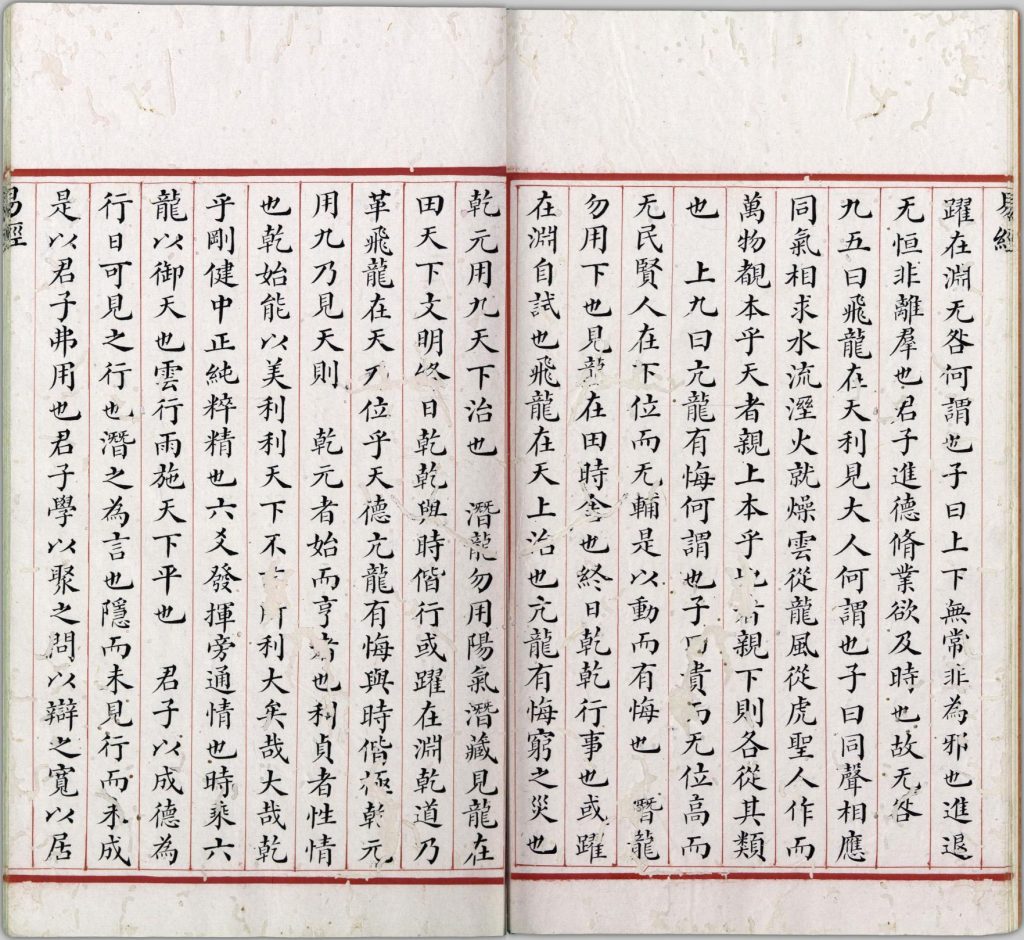 易經
躍在淵无咎何謂也子曰上下無常非為邪也進退
无恒非離羣也君子進德脩業欲及時也故无咎
九五曰飛龍在天利見大人何謂也子曰同聲相應
同氣相求水流溼火就燥雲從龍風從虎聖人作而
萬物覩本乎天者親上本乎者親下則各從其類
也　上九曰亢龍有悔何謂也子曰貴而无位高而
无民賢人在下位而无輔是以動而有悔也　潛龍
勿用下也見龍在田時舍也終日乾乾行事也或躍
在淵自試也飛龍在天上治也亢龍有悔窮之災也
乾元用九天下治也　潛龍勿用陽氣潛藏見龍在
田天下文明終日乾乾與時偕行或躍在淵乾道乃
革飛龍在天乃位乎天德亢龍有悔與時偕極乾元
用九乃見天則　乾元者始而亨者也利貞者性情
也乾始能以美利利天下不所利大矣哉大哉乾
乎剛健中正純粹精也六爻發揮旁通情也時乘六
龍以御天也雲行雨施天下平也　君子以成德為
行日可見之行也潛之為言也隱而未見行而未成
是以君子弗用也君子學以聚之問以辯之寬以居
易經